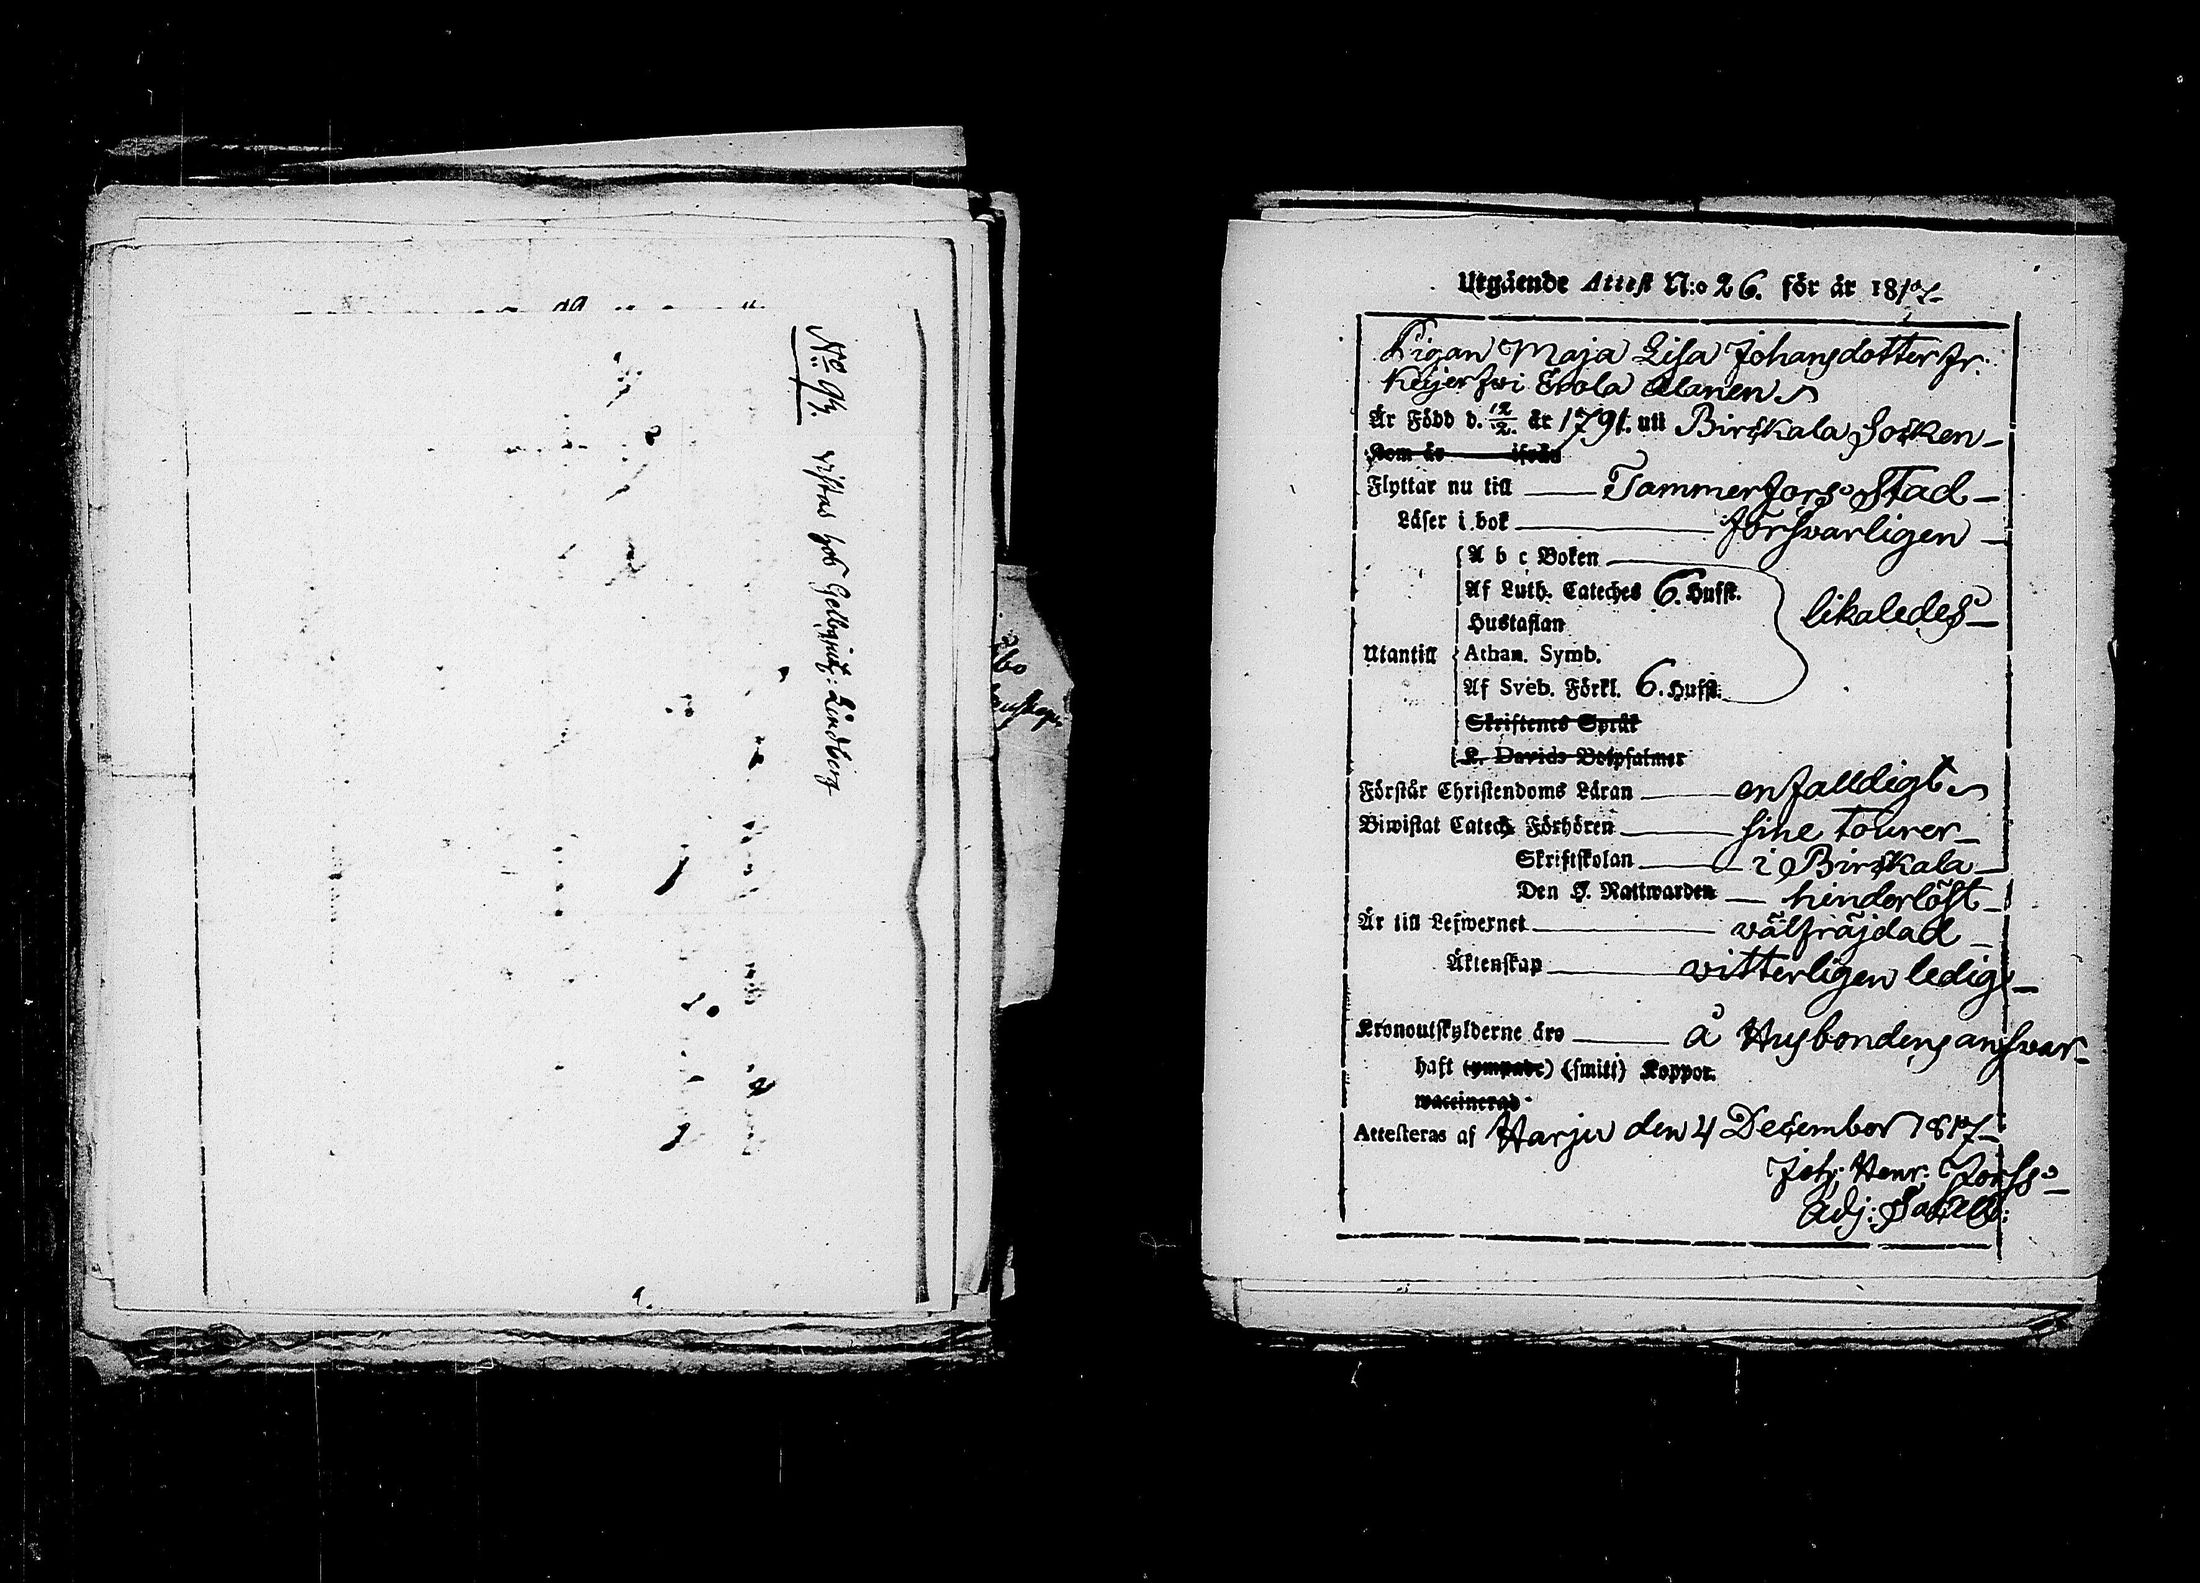 No 94. vistas hos Gelbgjut: Lindberg
Utgående Attest N:o 26. för år 1817
Pigan Maja Lisa Johansdotter fr.
Är Född d. 12/2. år 1791. uti Birckala Socken
Kom år ifrån
Flyttar nu till Tammerfors Stad
Läser i bok försvarligen
A b c Boken
Af Luth. Cateches 6. Hufst.
likaledes
Hustaflan
Utantill Athan. Symb.
Af Sveb. Förkl. 6. Hufst.
Skriftenes Språk
K. Davids Botpsalmer
Förstår Christendoms Läran enfalldigt
Biwistat Catech Förhören sine tourer
Skriftskolan i Birckala
Den H. Nattwarden hinderlöst
Är till Lefwernet välfräjdad
Äktenskap vitterligen ledig
Kronoutskylderne äro å Husbondens answar
haft (ympade) (smitt) Koppor.
waccinerad
Attesteras af Harju den 4 December 1817
Joh: Henr: Forss
Adj: Sacell: